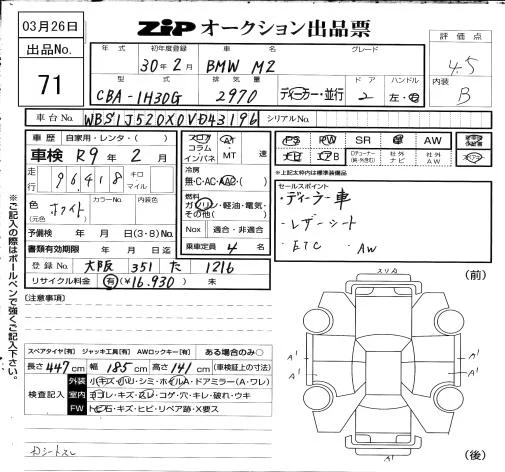 03月26日
ZIP オークション出品票
出品No.
71
年式 初年度登録 車名 グレード
30年2月 BMW M2
型式 排気量 ドア ハンドル
CBA-1H30G 2970 ディーラー・並行 2 左・右
評価点
4.5
内装
B
車台No. WBS1J520X0VD43196 シリアルNo.
車歴 自家用・レンタ・( )
車検 R9年2月
走行 96,418 キロ マイル
色(元色) ホワイト カラーNo. 内装色
予備検 年 月 日(3・8)No.
書類有効期限 年 月 日迄
登録No. 大阪 351 た 1216
リサイクル料金 有(¥16,930) 未
フロア コラム インパネ AT・MT 速
冷房
無・C・AC・AAC・( )
燃料
ガソリン・軽油・電気・その他( )
Nox 適合・非適合
乗車定員 4 名
PS PW SR 革 AW
ナビ AB 社外ナビ 社外AW
※上記太枠内は標準装備品
セールスポイント
・ディーラー車
・レザーシート
・ETC ・AW
※ご記入の際はボールペンで強くご記入下さい。
[注意事項]
スペアタイヤ[有] ジャッキ工具[有] AWロックキー[有] ある場合のみ○
長さ447cm 幅185cm 高さ141cm (車検証上の寸法)
検査記入
外装 小キズ・小凹・シミ・ホイルA・ドアミラー(A・ワレ)
室内 ヨゴレ・キズ・スレ・コゲ・穴・キレ・破れ・ウキ
FW トビ石・キズ・ヒビ・リペア跡・X要ス
(前)
スリA
A1
A1
A1
A1
(後)